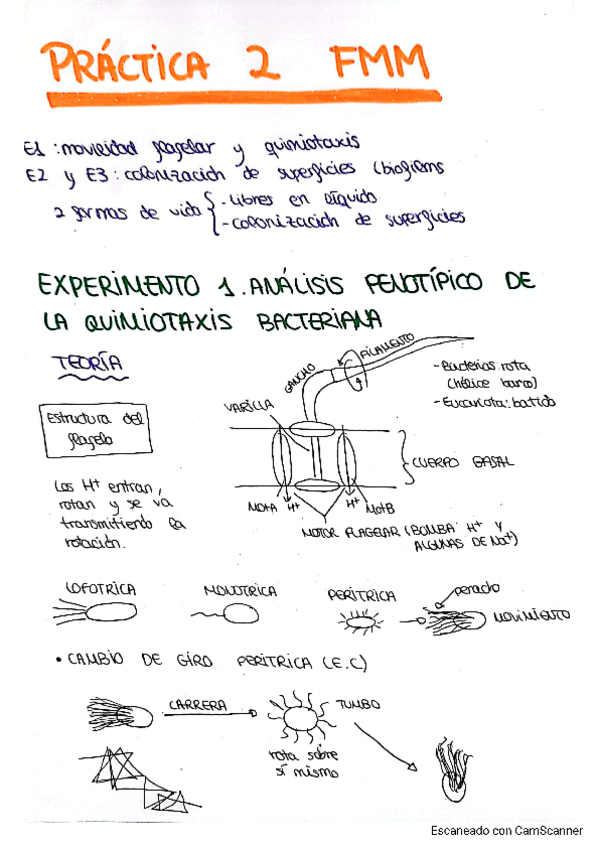 PRÁCTICA 2 FMM
E1: movilidad flagelar y quimiotaxis
E2 y E3: colonización de superficies (biofilms
2 formas de vida { - libres en líquido
- colonización de superficies
EXPERIMENTO 1. ANÁLISIS FENOTÍPICO DE
LA QUIMIOTAXIS BACTERIANA
TEORÍA
Estructura del
flagelo
Los H+ entran,
rotan y se va
transmitiendo la
rotación.
VARILLA
GANCHO
FILAMENTO
- Bacterias: rota
(hélice barco)
- Eucariota: batido
CUERPO BASAL
MOTA H+
H+ MotB
MOTOR FLAGELAR (BOMBA H+ Y
ALGUNAS DE Na+)
LOFOTRICA
MONOTRICA
PERITRICA
penacho
MOVIMIENTO
• CAMBIO DE GIRO PERITRICA (E.C)
CARRERA
TUMBO
rota sobre
sí mismo
Escaneado con CamScanner